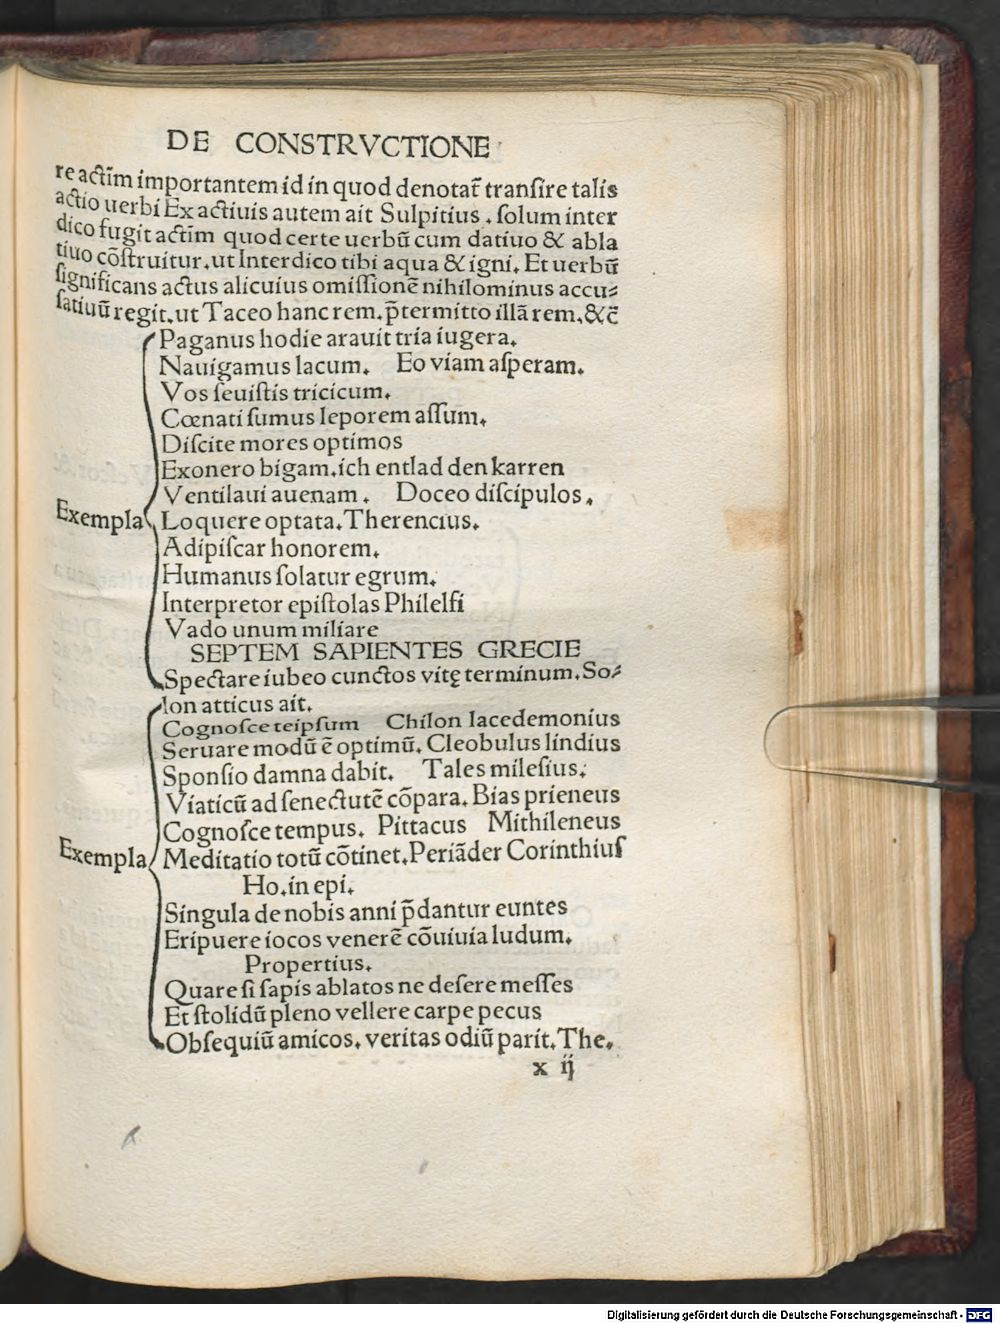 DE CONSTRVCTIONE
re actĩm importantem id in quod denotat᷑ tranſire talis
actio uerbi Ex actiuis autem ait Sulpitius . ſolum inter
dico fugit actĩm quod certe uerbũ cum datiuo & abla
tiuo cõſtruitur. ut Interdico tibi aqua & igni. Et uerbũ
ſignificans actus alicuius omiſſionẽ nihilominus accu⸗
ſatiuũ regit. ut Taceo hanc rem. p̃termitto illã rem. &c̃
Paganus hodie arauit tria iugera.
Nauigamus lacum. Eo viam aſperam.
Vos ſeuiſtis tricicum.
Cœnati ſumus leporem aſſum.
Diſcite mores optimos
Exonero bigam. ich entlad den karren
Ventilaui auenam . Doceo diſcipulos.
Exempla Loquere optata. Therencius.
Adipiſcar honorem.
Humanus ſolatur egrum.
Interpretor epiſtolas Philelfi
Vado unum miliare
SEPTEM SAPIENTES GRECIE
Spectare iubeo cunctos vitę terminum. So⸗
lon atticus ait.
Cognoſce teipſum Chilon lacedemonius
Seruare modũ ẽ optimũ. Cleobulus lindius
Sponſio damna dabit. Tales mileſius.
Viaticũ ad ſenectutẽ cõpara. Bias prieneus
Cognoſce tempus. Pittacus Mithileneus
Exempla Meditatio totũ cõtinet. Periãder Corinthiuſ
Ho. in epi.
Singula de nobis anni p̃dantur euntes
Eripuere iocos venerẽ cõuiuia ludum.
Propertius.
Quare ſi ſapis ablatos ne deſere meſſes
Et ſtolidũ pleno vellere carpe pecus
Obſequiũ amicos. veritas odiũ parit. The.
x ij
Digitalisierung gefördert durch die Deutsche Forschungsgemeinschaft - DFG